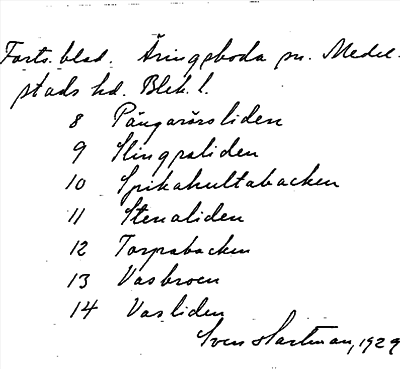 Forts. blad. Äringsboda sn. Medel-
stads hd. Blek. l.
8 Pångarörsliden
9 Slingraliden
10 Spikahultabacken
11 Stenaliden
12 Torpabacken
13 Vasbroen
14 Vasliden
Sven Hartman, 1929